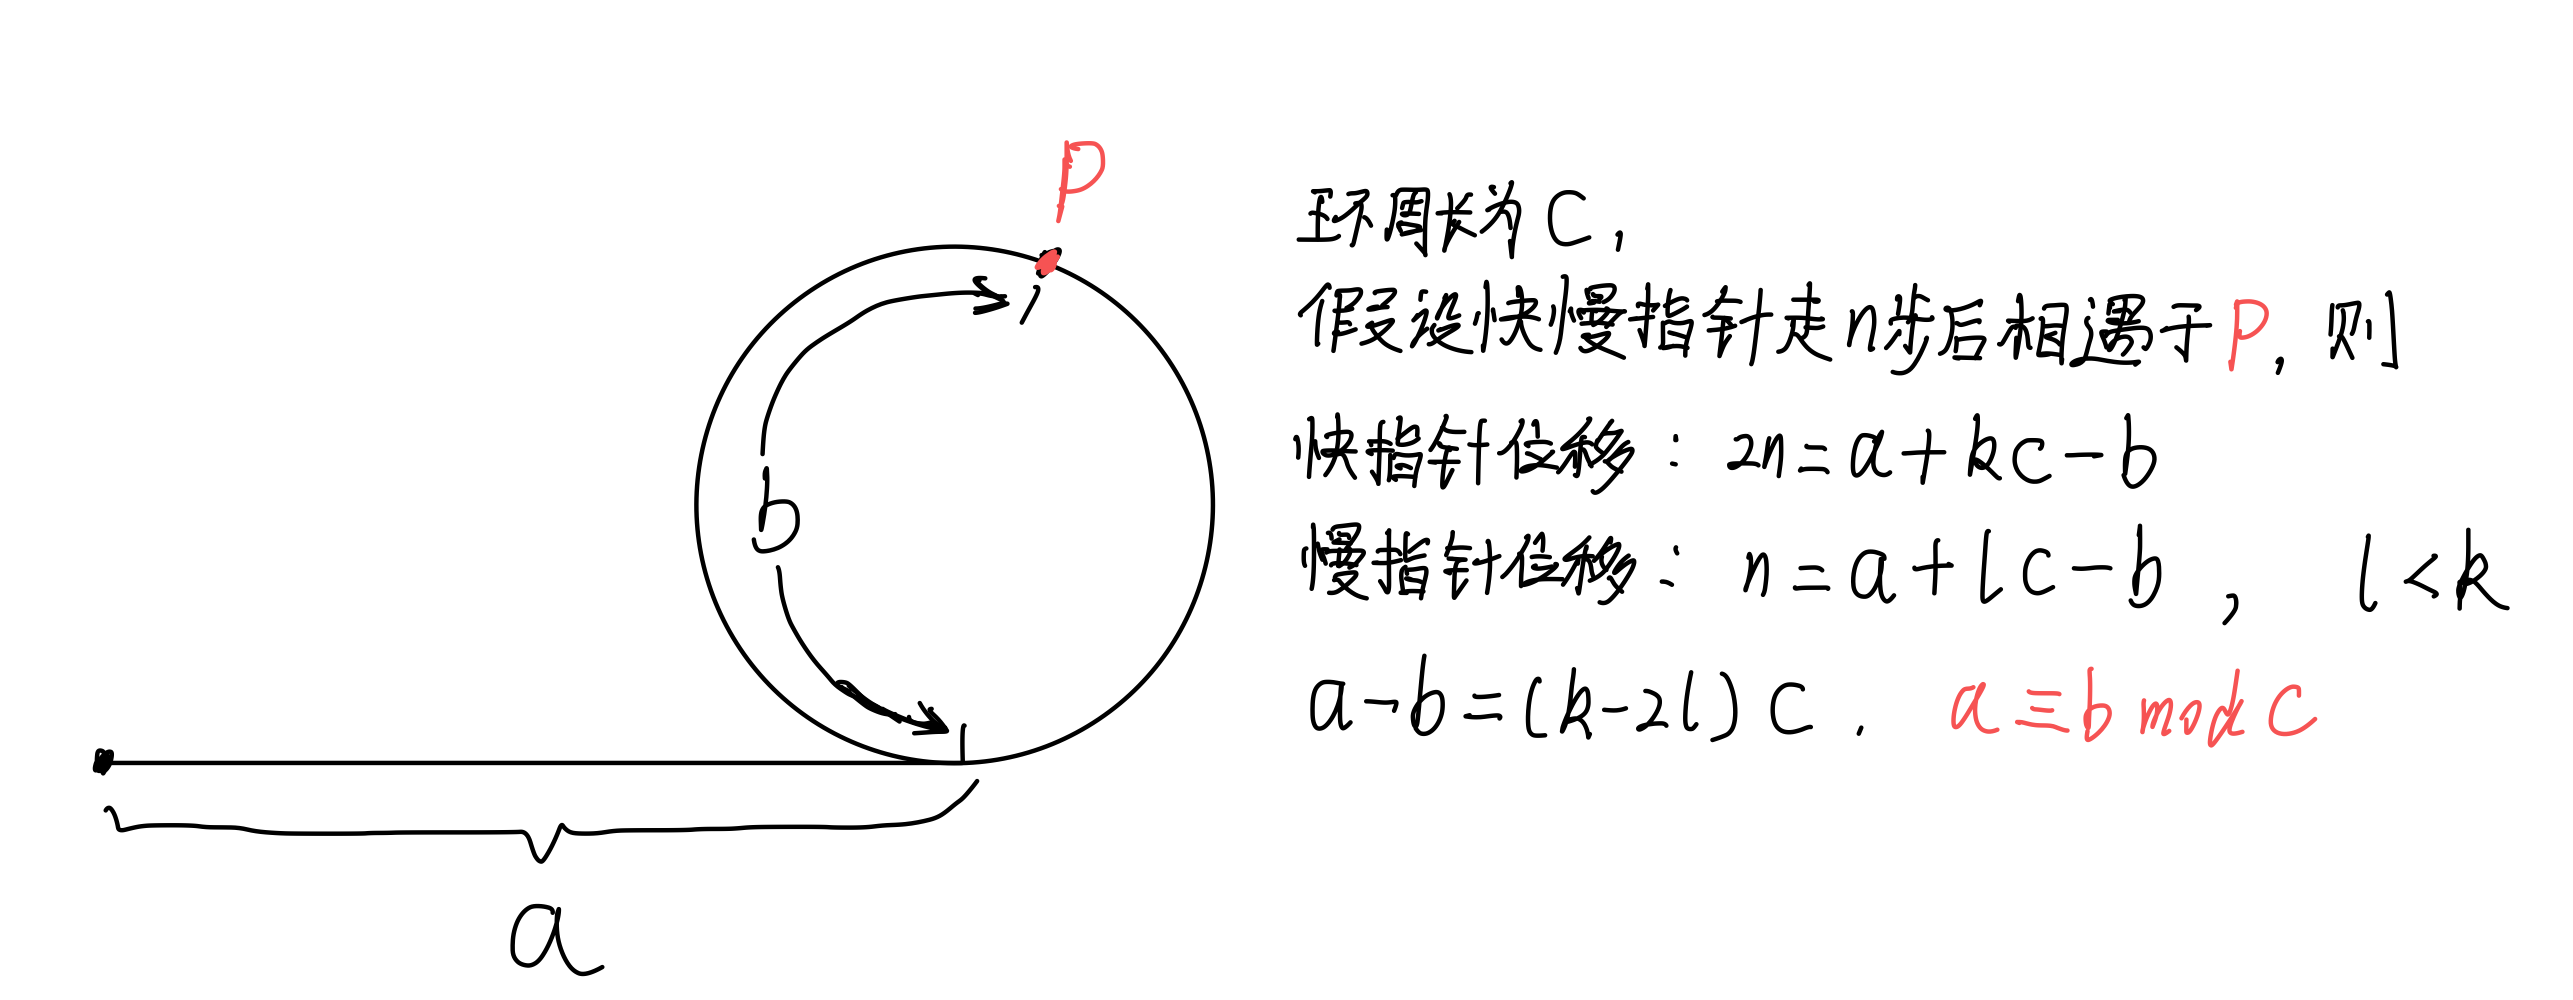 P
b
a
环周长为 C,
假设快慢指针走n步后相遇于P, 则
快指针位移: 2n=a+kc-b
慢指针位移: n=a+lc-b, l<k
a-b=(k-2l)C. a≡b mod C